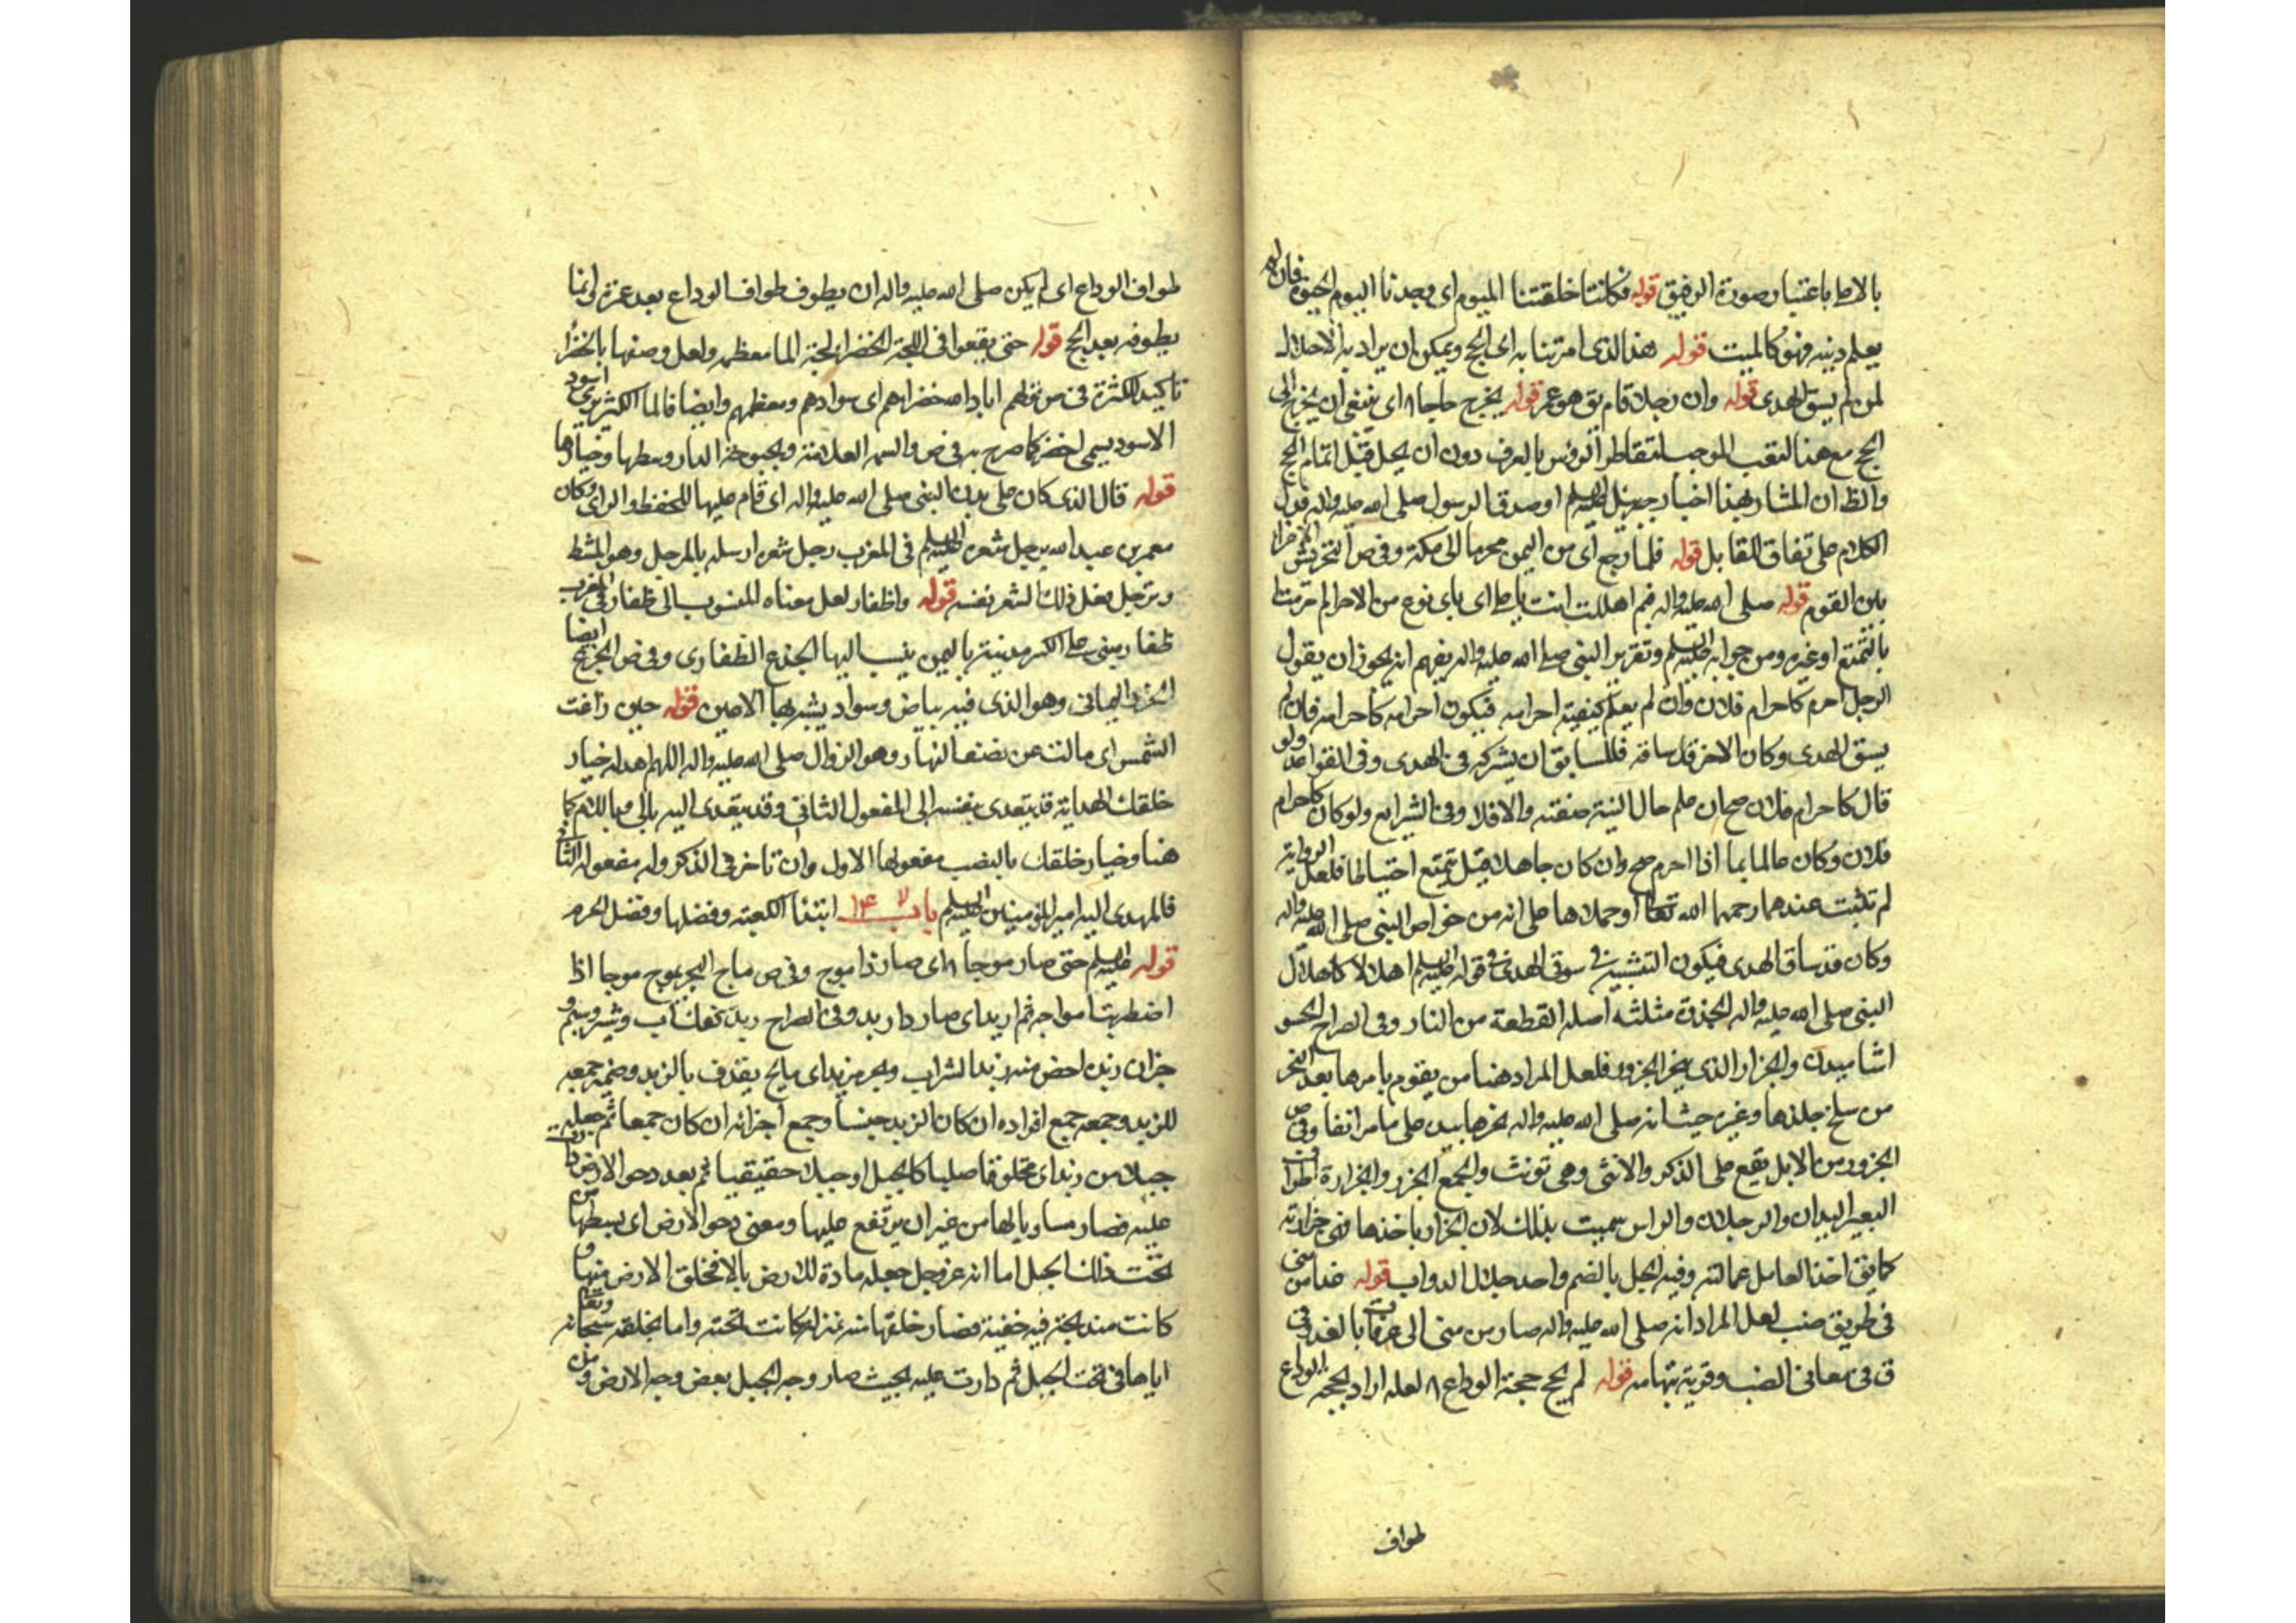 بالاط باعتبار صورة الرفيق قوله فكانتا خلقتنا اليوم اى وجدنا اليوم الحيوة فان لم
يعلم دينه فهو كالميت قوله هذا الذى امرتنا به اى الحج ويمكن ان يراد به الاحلال
لمن لم يسق الهدى قوله وان رجلا قام يق هو عمر قوله يخرج حاجا ٨ اى ينبغى ان يخرج الى
الحج مع هذا التعب الموجب لتقاطر الروس بالعرف دون ان يحل قبل اتمام الحج
والظ ان المشار بهذا اخبار جبرئيل عليه السلم او صدق الرسول صلى الله عليه واله قول
الكلام على تفاق المقابل قوله فلما رجع اى من اليمن محرما الى مكة وفى ص التحريش الاغراء
بين القوم قوله صلى الله عليه واله فبم اهللت انت يا على اى باى نوع من الاحرام احرمت
بالتمتع او غيره ومن جوابه عليه السلم وتقرير النبى صلى الله عليه واله يفهم انه يجوز ان يقول
الرجل احرم كاحرام فلان وان لم يعلم كيفية احرامه فيكون احرامه كاحرامه فان لم
يسق الهدى وكان الاخر قد ساقه فللسابق ان يشركه فى الهدى وفى القواعد ولو
قال كاحرام فلان صح ان علم حال النية صفته والافلا وفى الشرايع ولو كان كاحرام
فلان وكان عالما بما اذا احرم صح وان كان جاهلا قيل يتمتع احتياطا فلعل الرواية
لم تثبت عندهما رحمهما الله تعالى او حملاها على انه من خواص النبى صلى الله عليه واله
وكان قد ساق الهدى فيكون التشبيه فى سوق الهدى فى قوله عليه السلم اهلالا كاهلال
النبى صلى الله عليه واله الجذوة مثلثه اصله القطعة من النار وفى الصراح الحسو
اشاميدن والجزار الذى ينحر الجزور فلعل المراد هنا من يقوم بامرها بعد النحر
من سلخ جلدها وغيره حيث انه صلى الله عليه واله نحرها بيده على ما مر انفا وفى ص
الجزور من الابل يقع على الذكر والانثى وهى تونث والجمع الجزر والجزارة اطراف
البعير اليدان والرجلان والراس سميت بذلك لان الجزار ياخذها فهى جزارته
كما يق اخذ العامل عمالته وفيه الجل بالضم واحد جلال الدواب قوله غدا من منى
فى طريق ضب لعل المراد انه صلى الله عليه واله صار من منى الى عرفات بالغد وفى
ق فى معانى الضب وقرية بتهامه قوله لم يحج حجة الوداع ٨ لعله اراد بالحجه الوداع
طواف
طواف الوداع اى لم يكن صلى الله عليه واله ان يطوف طواف الوداع بعد عمرته وانما
يطوفه بعد الحج قوله حتى يقعوا فى اللجة الخضراء لجة الما معظمه ولعل وصفها بالخضراء
تاكيد للكثرة فى ص قولهم اباد الله خضراءهم اى سوادهم ومعظمهم وايضا فالما الكثير يرى اسود
الاسود يسمى اخضر كما صرح به فى ص والسمة العلامة وبحبوحة الدار وسطها وخيارها
قوله قال الذى كان على بدن النبى صلى الله عليه واله اى قام عليها للحفظ والراى وكان
معمر بن عبد الله يرجل شعره عليه السلم فى المغرب رجل شعره ارسله بالمرجل وهو المشط
وترجل فعل ذلك لشعر نفسه قوله واظفار لعل معناه المنسوب الى ظفار وفى المغرب
ظفار مبنى على الكسر مدينة باليمن ينسب اليها الجذع الظفارى وفى ص الجزع ايضا
الخرز اليمانى وهو الذى فيه بياض وسواد يشبه بها الاعين قوله حين زاغت
الشمس اى مالت عن نصف النهار وهو الزوال صلى الله عليه واله اللهم اهد له خيار
خلقك الهداية قد يتعدى بنفسه الى المفعول الثانى وقد يتعدى اليه بالى وباللام كما
هنا وخيار خلقك بالنصب مفعولها الاول وان تاخر فى الذكر وله مفعوله الثانى
فالمهدى اليه امير المؤمنين عليه السلم باب ابتدا الكعبة وفضلها وفضل الحرم
قوله عليه السلم حتى صار موجا ٨ اى صار ذا موج وفى ص ماج البحر يموج موجا اذا
اضطربت امواجه ثم ازبد اى صار ذا زبد وفى الصراح زبد كفك آب وشير وسيم و
جزان زبده اخص منه زبد الشراب وبحر مزبد اى مايج يقذف بالزبد وضمير جمعه
للزبد وجمعه جمع افراده ان كان الزبد جنسا وجمع اجزائه ان كان جمعا ثم جعله
جبلا من زبد اى مخلوقا صلبا كالجبل او جبلا حقيقيا ثم بعد دحو الارض
عليه فصار مساويا لها من غير ان يرتفع عليها ومعنى دحو الارض اى بسطها من
تحت ذلك الجبل اما انه عز وجل جعله مادة للارض بالا فخلق الارض منها و
كانت مندمجة فيه خفية فصار خلقها منه بمنزلة كانت تحته واما بخلقه سبحانه وتعالى
اياها فى تحت الجبل ثم دارت عليه بحيث صار وجه الجبل بعض وجه الارض ومن